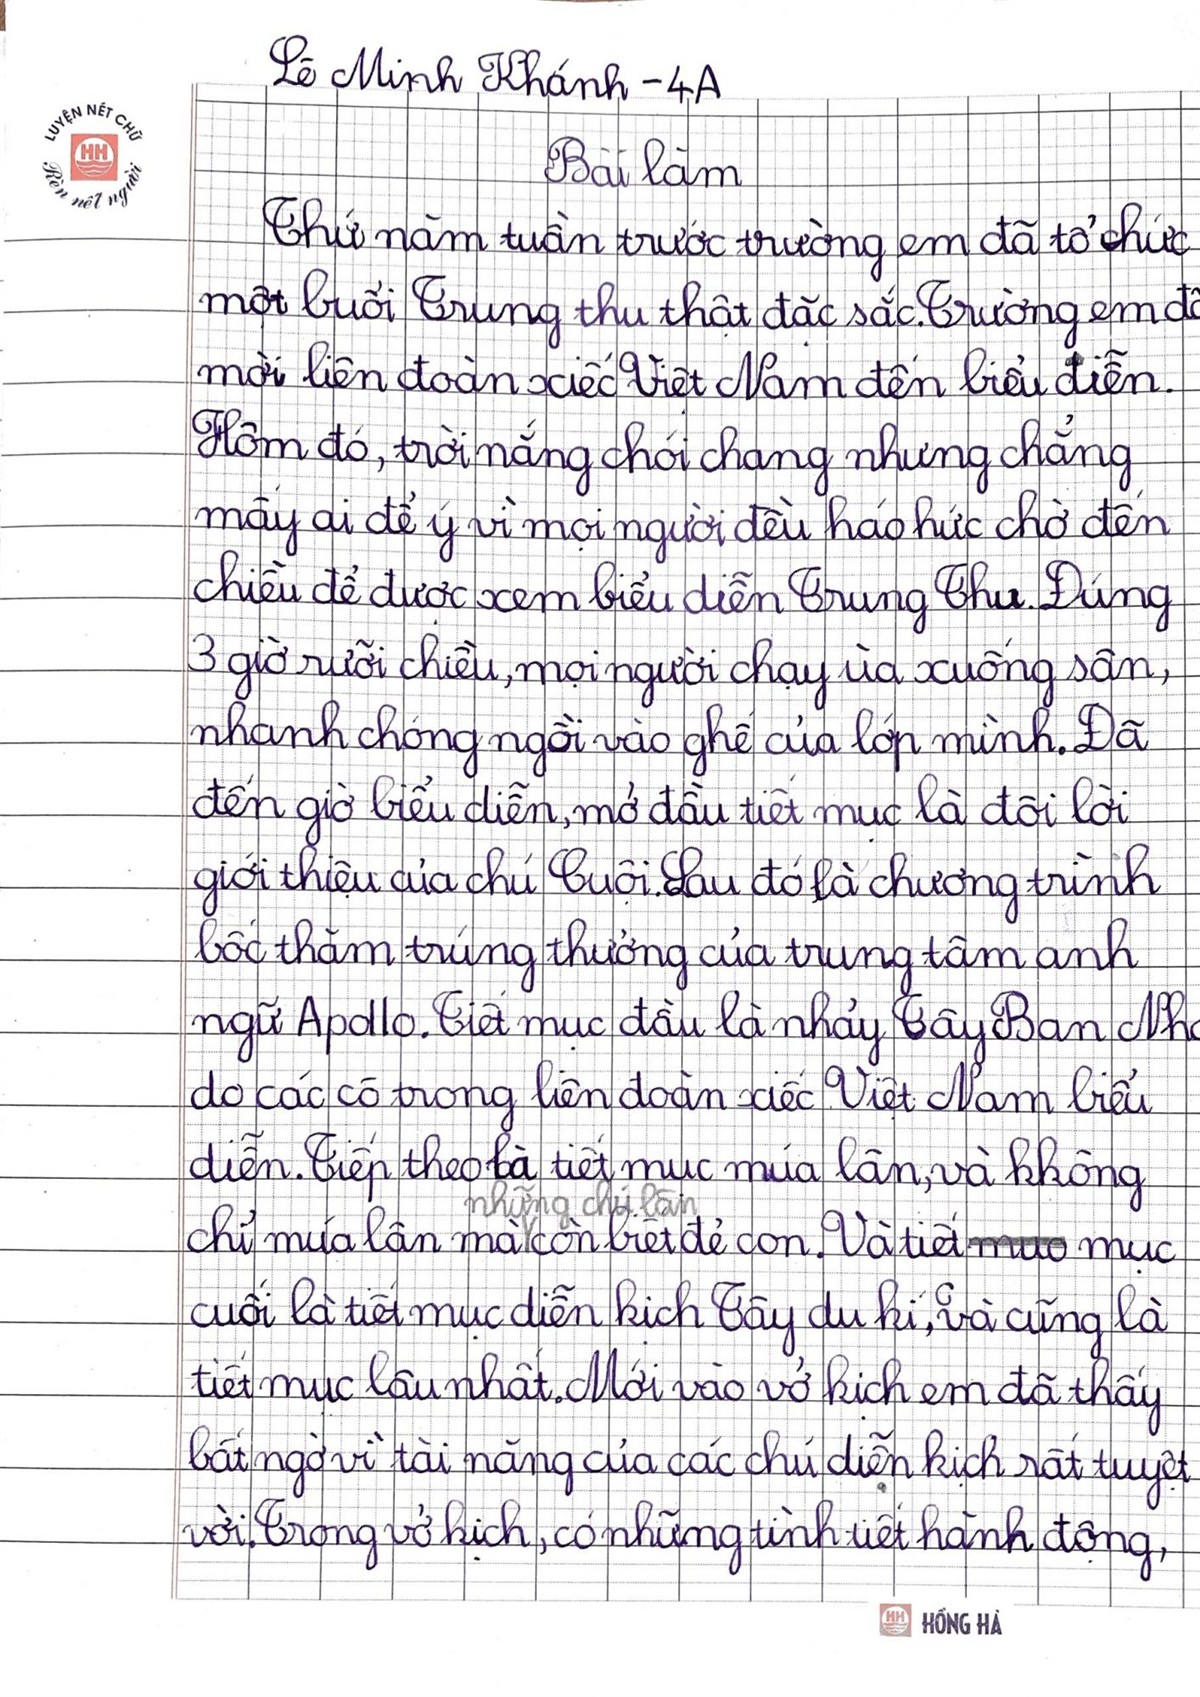 Lê Minh Khánh - 4A
LUYỆN NÉT CHỮ
HH
Rèn nết người
Bài làm
Thứ năm tuần trước trường em đã tổ chức
một buổi Trung thu thật đặc sắc. Trường em đã
mời liên đoàn xiếc Việt Nam đến biểu diễn.
Hôm đó, trời nắng chói chang nhưng chẳng
mấy ai để ý vì mọi người đều háo hức chờ đến
chiều để được xem biểu diễn Trung Thu. Đúng
3 giờ rưỡi chiều, mọi người chạy ùa xuống sân,
nhanh chóng ngồi vào ghế của lớp mình. Đã
đến giờ biểu diễn, mở đầu tiết mục là đôi lời
giới thiệu của chú Cuội. Sau đó là chương trình
bốc thăm trúng thưởng của trung tâm anh
ngữ Apollo. Tiết mục đầu là nhảy Tây Ban Nha
do các cô trong liên đoàn xiếc Việt Nam biểu
diễn. Tiếp theo là tiết mục múa lân, và không
những chú lân
chỉ múa lân mà còn biết đẻ con. Và tiết mục mục
cuối là tiết mục diễn kịch Tây du kí, và cũng là
tiết mục lâu nhất. Mới vào vở kịch em đã thấy
bất ngờ vì tài năng của các chú diễn kịch rất tuyệt
vời. Trong vở kịch, có những tình tiết hành động,
HH HỒNG HÀ